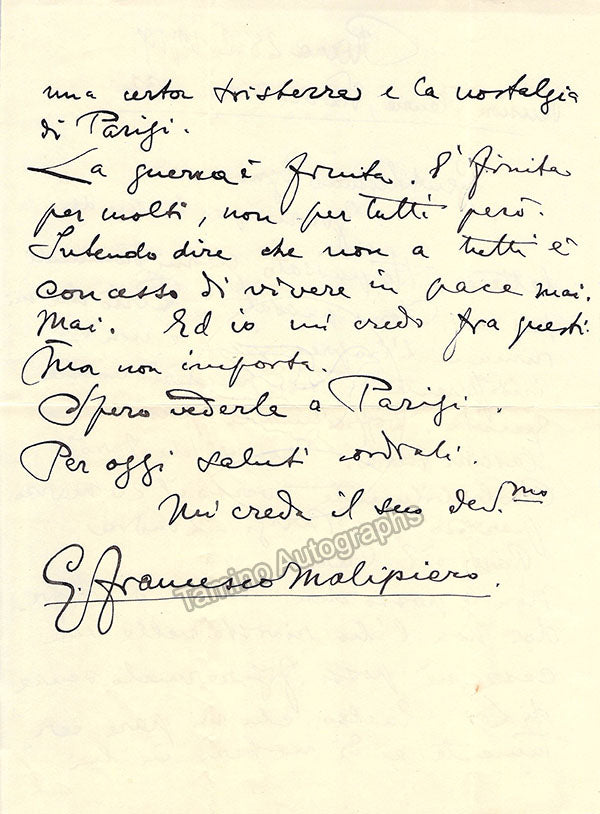 una certa tristezza e la nostalgia
di Parigi.
La guerra è finita. È finita
per molti, non per tutti però.
Intendo dire che non a tutti è
concesso di vivere in pace mai.
Mai. Ed io mi credo fra questi.
Ma non importa.
Spero vederla a Parigi.
Per oggi saluti cordiali.
Mi creda il suo dev.mo
G. Francesco Malipiero.
Tamino Autographs